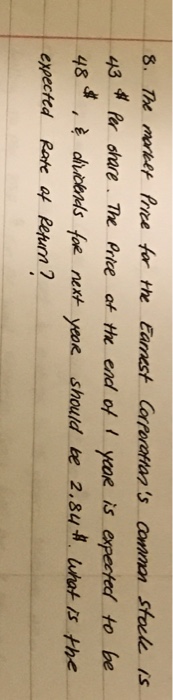 8. The market Price for the Earnest Corporation's common stock is
43 $ Per share. The Price at the end of 1 year is expected to be
48 $, & dividends for next year should be 2.84 $. What is the
expected Rate of Return?